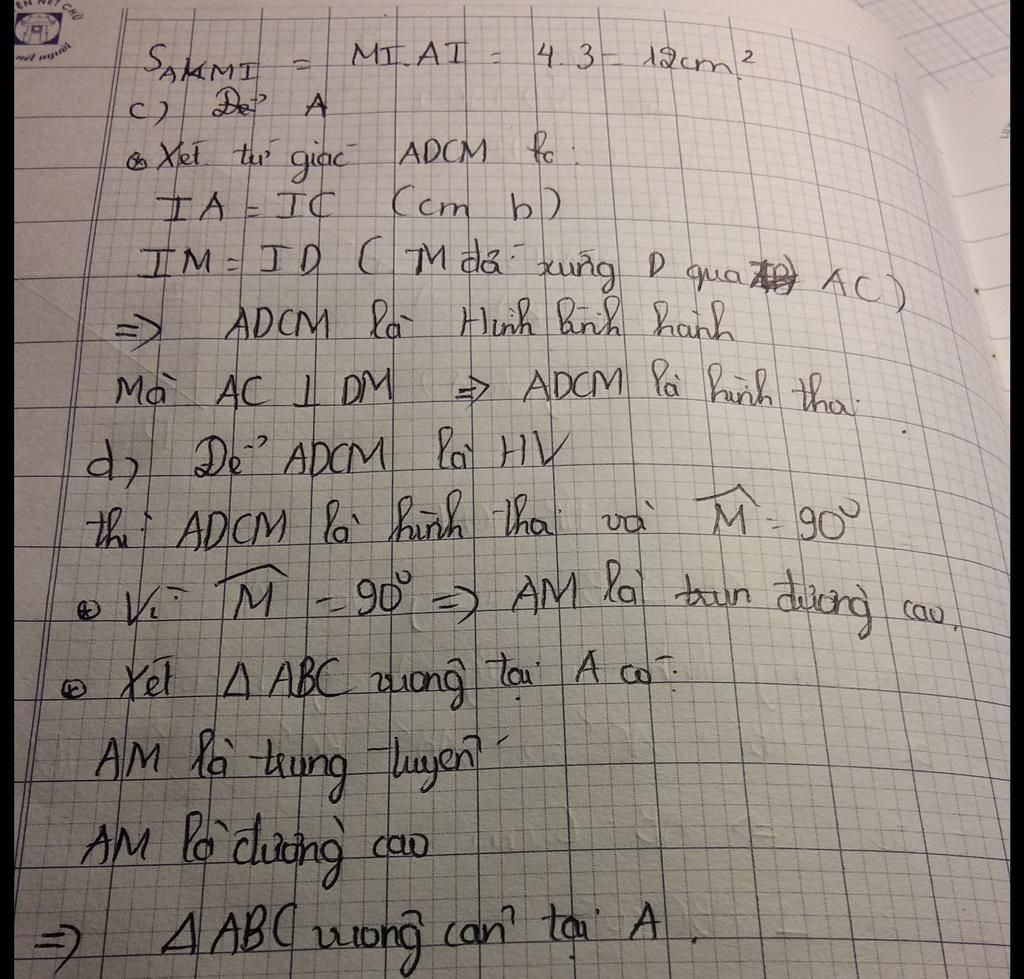 ÊN NÉT CHỮ
nết người
S_AKMI = MI.AI = 4.3 = 12cm²
c) Để A
⊕ Xét tứ giác ADCM có:
IA = IC (cm b)
IM = ID ( M đối xứng D qua AC)
=> ADCM là Hình bình hành
Mà AC ⊥ DM => ADCM là hình thoi
d) Để ADCM là HV
thì ADCM là hình thoi và M̂ = 90°
⊕ Vì M̂ = 90° => AM là đường cao.
⊕ Xét Δ ABC vuông tại A có:
AM là trung tuyến
AM là đường cao
=> Δ ABC vuông cân tại A.